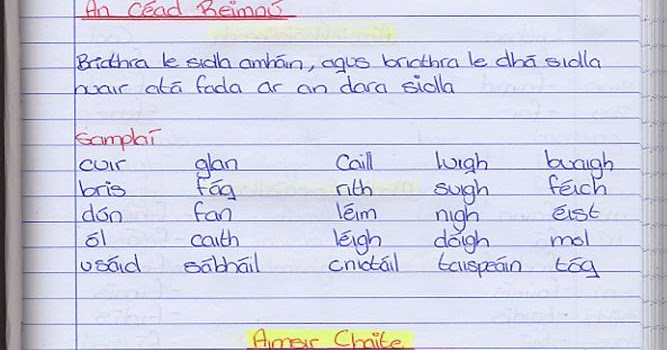 An Céad Reimnú
Briathra le siolla amháin, agus briathra le dhá siolla
nuair atá fada ar an dara siolla
Samplaí
cuir glan caill luigh buaigh
bris fág rith suigh féach
dún fan léim nigh éist
ól caith léigh dóigh mol
úsáid sábháil cniotáil taispeáin tóg
Aimsir Chaite